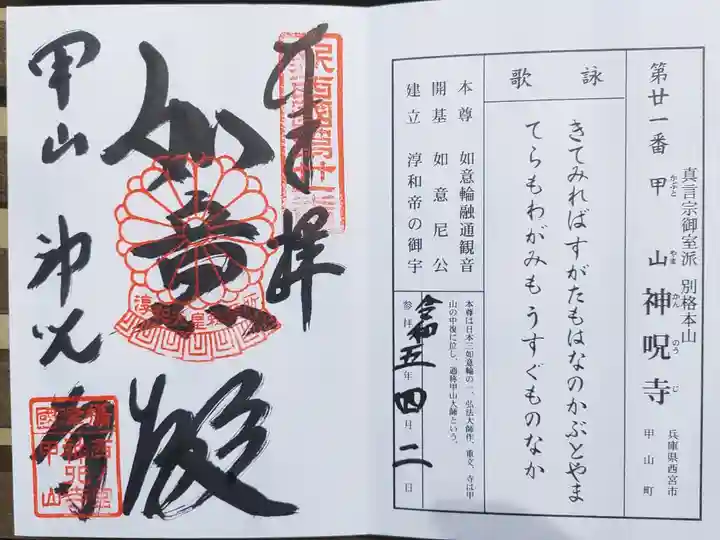 第廿一番
真言宗御室派 別格本山
甲山神呪寺
かぶと やま かん のう じ
兵庫県西宮市
甲山町
詠歌
きてみればすがたもはなのかぶとやま
てらもわがみも うすぐものなか
本尊 如意輪融通観音
開基 如意尼公
建立 淳和帝の御宇
本尊は日本三如意輪の一、弘法大師作、重文、寺は甲
山の中復に位し、通称甲山大師という。
参拝 令和五年四月二日
奉拝
如意殿
甲山 神呪寺